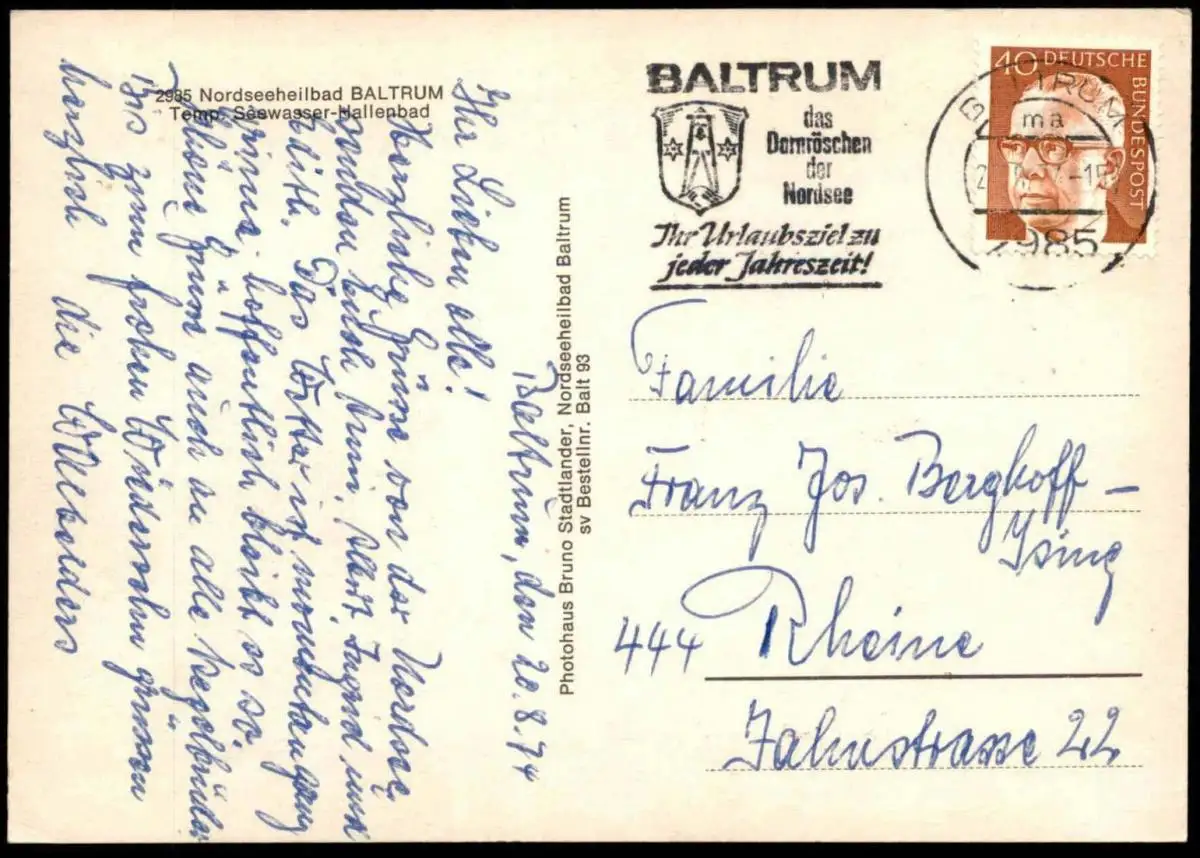 2985 Nordseeheilbad BALTRUM
Temp. Seewasser-Hallenbad
Baltrum, den 20.8.74
Ihr Lieben alle!
Herzliche Grüße von der Nordsee
senden Euch Ingrid und
Edith. Das Wetter ist momentan ganz
prima, hoffentlich bleibt es so.
Schöne Grüße auch an alle Kegelbrüder
Bis zum frohen Wiedersehn grüssen
herzlich die
Photohaus Bruno Stadtlander, Nordseeheilbad Baltrum
sv Bestellnr. Balt 93
BALTRUM
das
Dornröschen
der
Nordsee
Ihr Urlaubsziel zu
jeder Jahreszeit!
40 DEUTSCHE
BUNDESPOST
BALTRUM
ma
2985
Familie
Franz Jos. Berghoff-
Ising
444 Rheine
Jahnstrasse 22